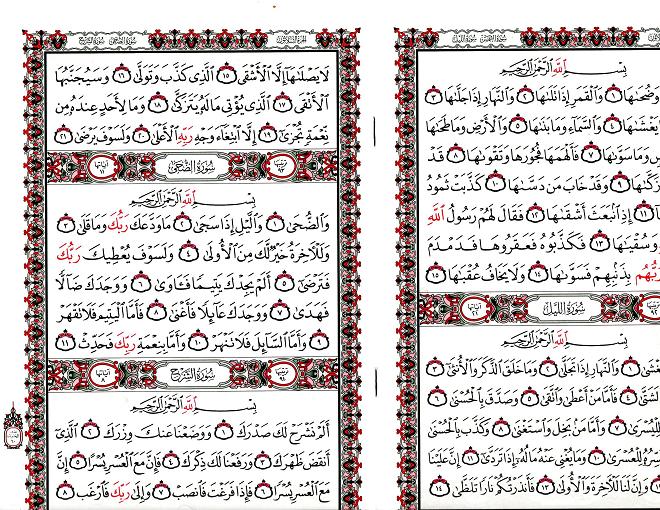 سورة الشمس سورة الليل
بِسْمِ ٱللَّهِ ٱلرَّحْمَٰنِ ٱلرَّحِيمِ
وَضُحَىٰهَا ١ وَٱلْقَمَرِ إِذَا تَلَىٰهَا ٢ وَٱلنَّهَارِ إِذَا جَلَّىٰهَا ٣
يَغْشَىٰهَا ٤ وَٱلسَّمَآءِ وَمَا بَنَىٰهَا ٥ وَٱلْأَرْضِ وَمَا طَحَىٰهَا
وَمَا سَوَّىٰهَا ٧ فَأَلْهَمَهَا فُجُورَهَا وَتَقْوَىٰهَا ٨ قَدْ
زَكَّىٰهَا ٩ وَقَدْ خَابَ مَن دَسَّىٰهَا ١٠ كَذَّبَتْ ثَمُودُ
١١ إِذِ ٱنۢبَعَثَ أَشْقَىٰهَا ١٢ فَقَالَ لَهُمْ رَسُولُ ٱللَّهِ
وَسُقْيَٰهَا ١٣ فَكَذَّبُوهُ فَعَقَرُوهَا فَدَمْدَمَ
رَبُّهُم بِذَنۢبِهِمْ فَسَوَّىٰهَا ١٤ وَلَا يَخَافُ عُقْبَٰهَا ١٥
سُورَةُ اللَّيْل آياتها ٢١
بِسْمِ ٱللَّهِ ٱلرَّحْمَٰنِ ٱلرَّحِيمِ
يَغْشَىٰ ١ وَٱلنَّهَارِ إِذَا تَجَلَّىٰ ٢ وَمَا خَلَقَ ٱلذَّكَرَ وَٱلْأُنثَىٰٓ ٣
لَشَتَّىٰ ٤ فَأَمَّا مَنْ أَعْطَىٰ وَٱتَّقَىٰ ٥ وَصَدَّقَ بِٱلْحُسْنَىٰ ٦
لِلْيُسْرَىٰ ٧ وَأَمَّا مَنۢ بَخِلَ وَٱسْتَغْنَىٰ ٨ وَكَذَّبَ بِٱلْحُسْنَىٰ
لِلْعُسْرَىٰ ١٠ وَمَا يُغْنِى عَنْهُ مَالُهُۥٓ إِذَا تَرَدَّىٰٓ ١١ إِنَّ عَلَيْنَا
١٢ وَإِنَّ لَنَا لَلْءَاخِرَةَ وَٱلْأُولَىٰ ١٣ فَأَنذَرْتُكُمْ نَارًا تَلَظَّىٰ ١٤
الجزء الثلاثون سورة الضحى سورة الشرح
لَا يَصْلَىٰهَآ إِلَّا ٱلْأَشْقَى ١٥ ٱلَّذِى كَذَّبَ وَتَوَلَّىٰ ١٦ وَسَيُجَنَّبُهَا
ٱلْأَتْقَى ١٧ ٱلَّذِى يُؤْتِى مَالَهُۥ يَتَزَكَّىٰ ١٨ وَمَا لِأَحَدٍ عِندَهُۥ مِن
نِّعْمَةٍ تُجْزَىٰٓ ١٩ إِلَّا ٱبْتِغَآءَ وَجْهِ رَبِّهِ ٱلْأَعْلَىٰ ٢٠ وَلَسَوْفَ يَرْضَىٰ ٢١
ترتيبها ٩٣ سُورَةُ الضُّحَى آياتها ١١
بِسْمِ ٱللَّهِ ٱلرَّحْمَٰنِ ٱلرَّحِيمِ
وَٱلضُّحَىٰ ١ وَٱلَّيْلِ إِذَا سَجَىٰ ٢ مَا وَدَّعَكَ رَبُّكَ وَمَا قَلَىٰ ٣
وَلَلْءَاخِرَةُ خَيْرٌ لَّكَ مِنَ ٱلْأُولَىٰ ٤ وَلَسَوْفَ يُعْطِيكَ رَبُّكَ
فَتَرْضَىٰٓ ٥ أَلَمْ يَجِدْكَ يَتِيمًا فَـَٔاوَىٰ ٦ وَوَجَدَكَ ضَآلًّا
فَهَدَىٰ ٧ وَوَجَدَكَ عَآئِلًا فَأَغْنَىٰ ٨ فَأَمَّا ٱلْيَتِيمَ فَلَا تَقْهَرْ
٩ وَأَمَّا ٱلسَّآئِلَ فَلَا تَنْهَرْ ١٠ وَأَمَّا بِنِعْمَةِ رَبِّكَ فَحَدِّثْ ١١
ترتيبها ٩٤ سُورَةُ الشَّرْح آياتها ٨
بِسْمِ ٱللَّهِ ٱلرَّحْمَٰنِ ٱلرَّحِيمِ
أَلَمْ نَشْرَحْ لَكَ صَدْرَكَ ١ وَوَضَعْنَا عَنكَ وِزْرَكَ ٢ ٱلَّذِىٓ
أَنقَضَ ظَهْرَكَ ٣ وَرَفَعْنَا لَكَ ذِكْرَكَ ٤ فَإِنَّ مَعَ ٱلْعُسْرِ يُسْرًا ٥ إِنَّ
مَعَ ٱلْعُسْرِ يُسْرًا ٦ فَإِذَا فَرَغْتَ فَٱنصَبْ ٧ وَإِلَىٰ رَبِّكَ فَٱرْغَب ٨